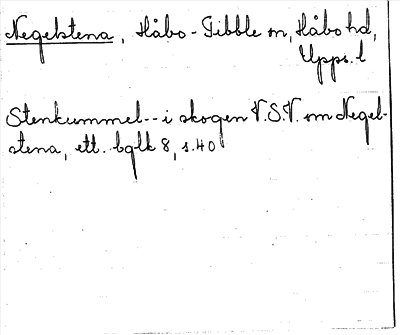 Negelstena, Håbo-Tibble sn, Håbo hd,
Upps. l
Stenkummel-- i skogen V.S.V. om Negel-
stena, ett. bglk 8, s. 40